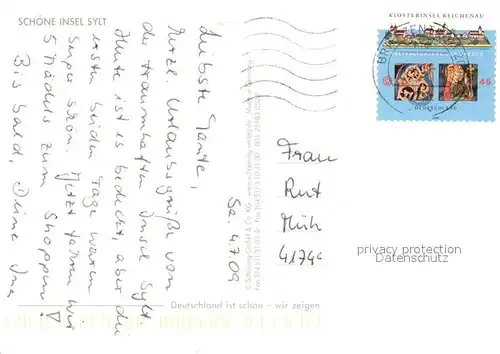 SCHÖNE INSEL SYLT
Sa 4.7.09
Liebste Tante,
Herzl. Urlaubsgrüße von
der traumhaften Insel Sylt
Heute ist es bedeckt, aber die
ersten beiden Tage waren
super schön. Jetzt fahren wir
5 Mädels zum Shoppen!
Bis bald, Deine
Frau
Rut
4174
KLOSTERINSEL REICHENAU
45
DEUTSCHLAND
privacy protection
Deutschland ist schön – wir zeigen